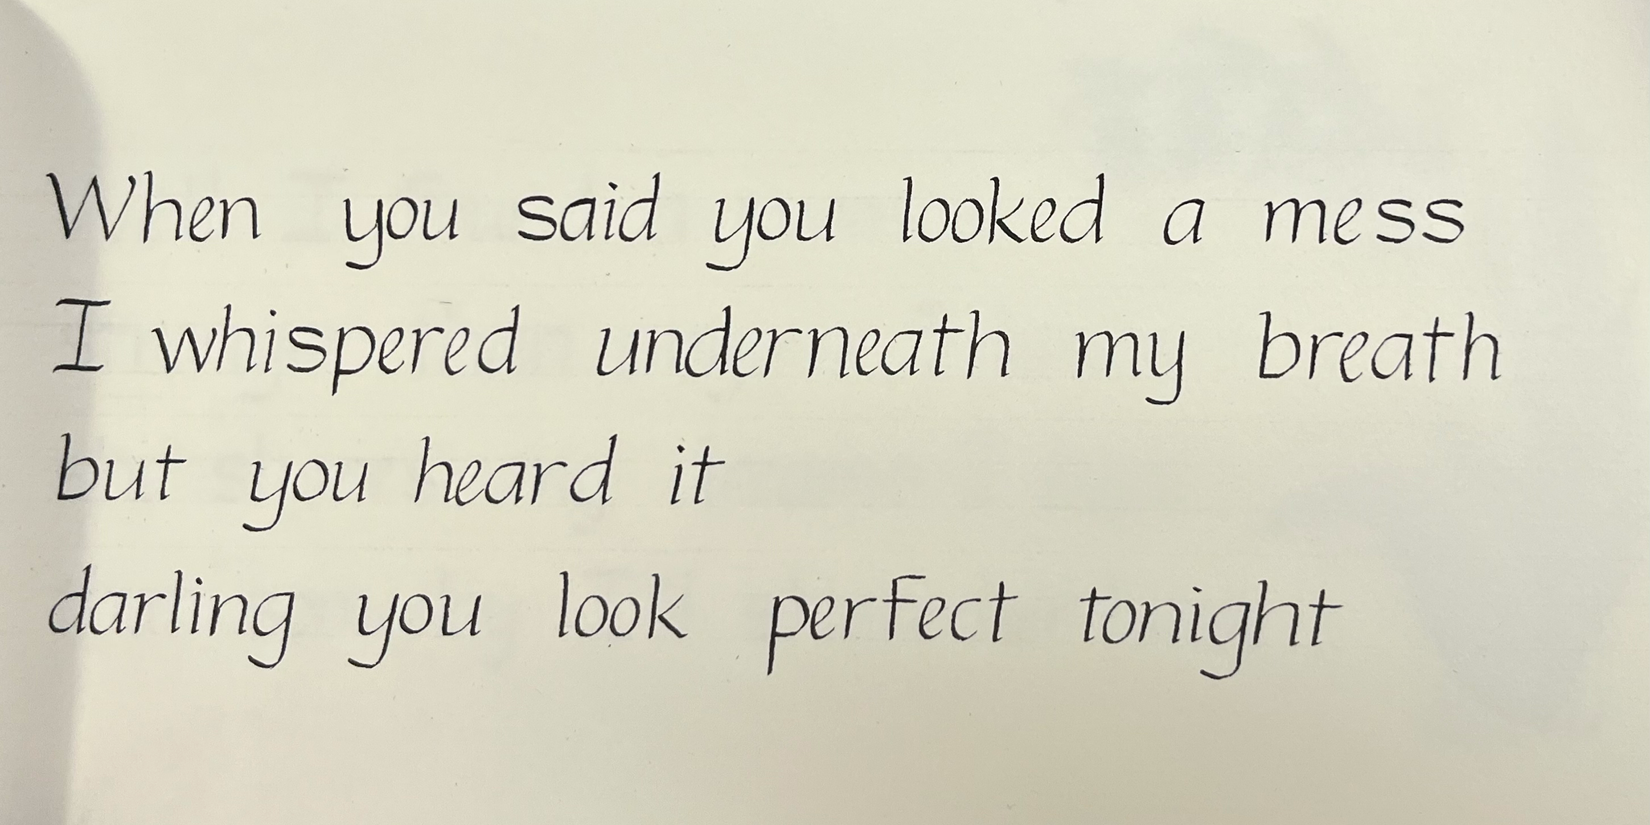 When you said you looked a mess
I whispered underneath my breath
but you heard it
darling you look perfect tonight